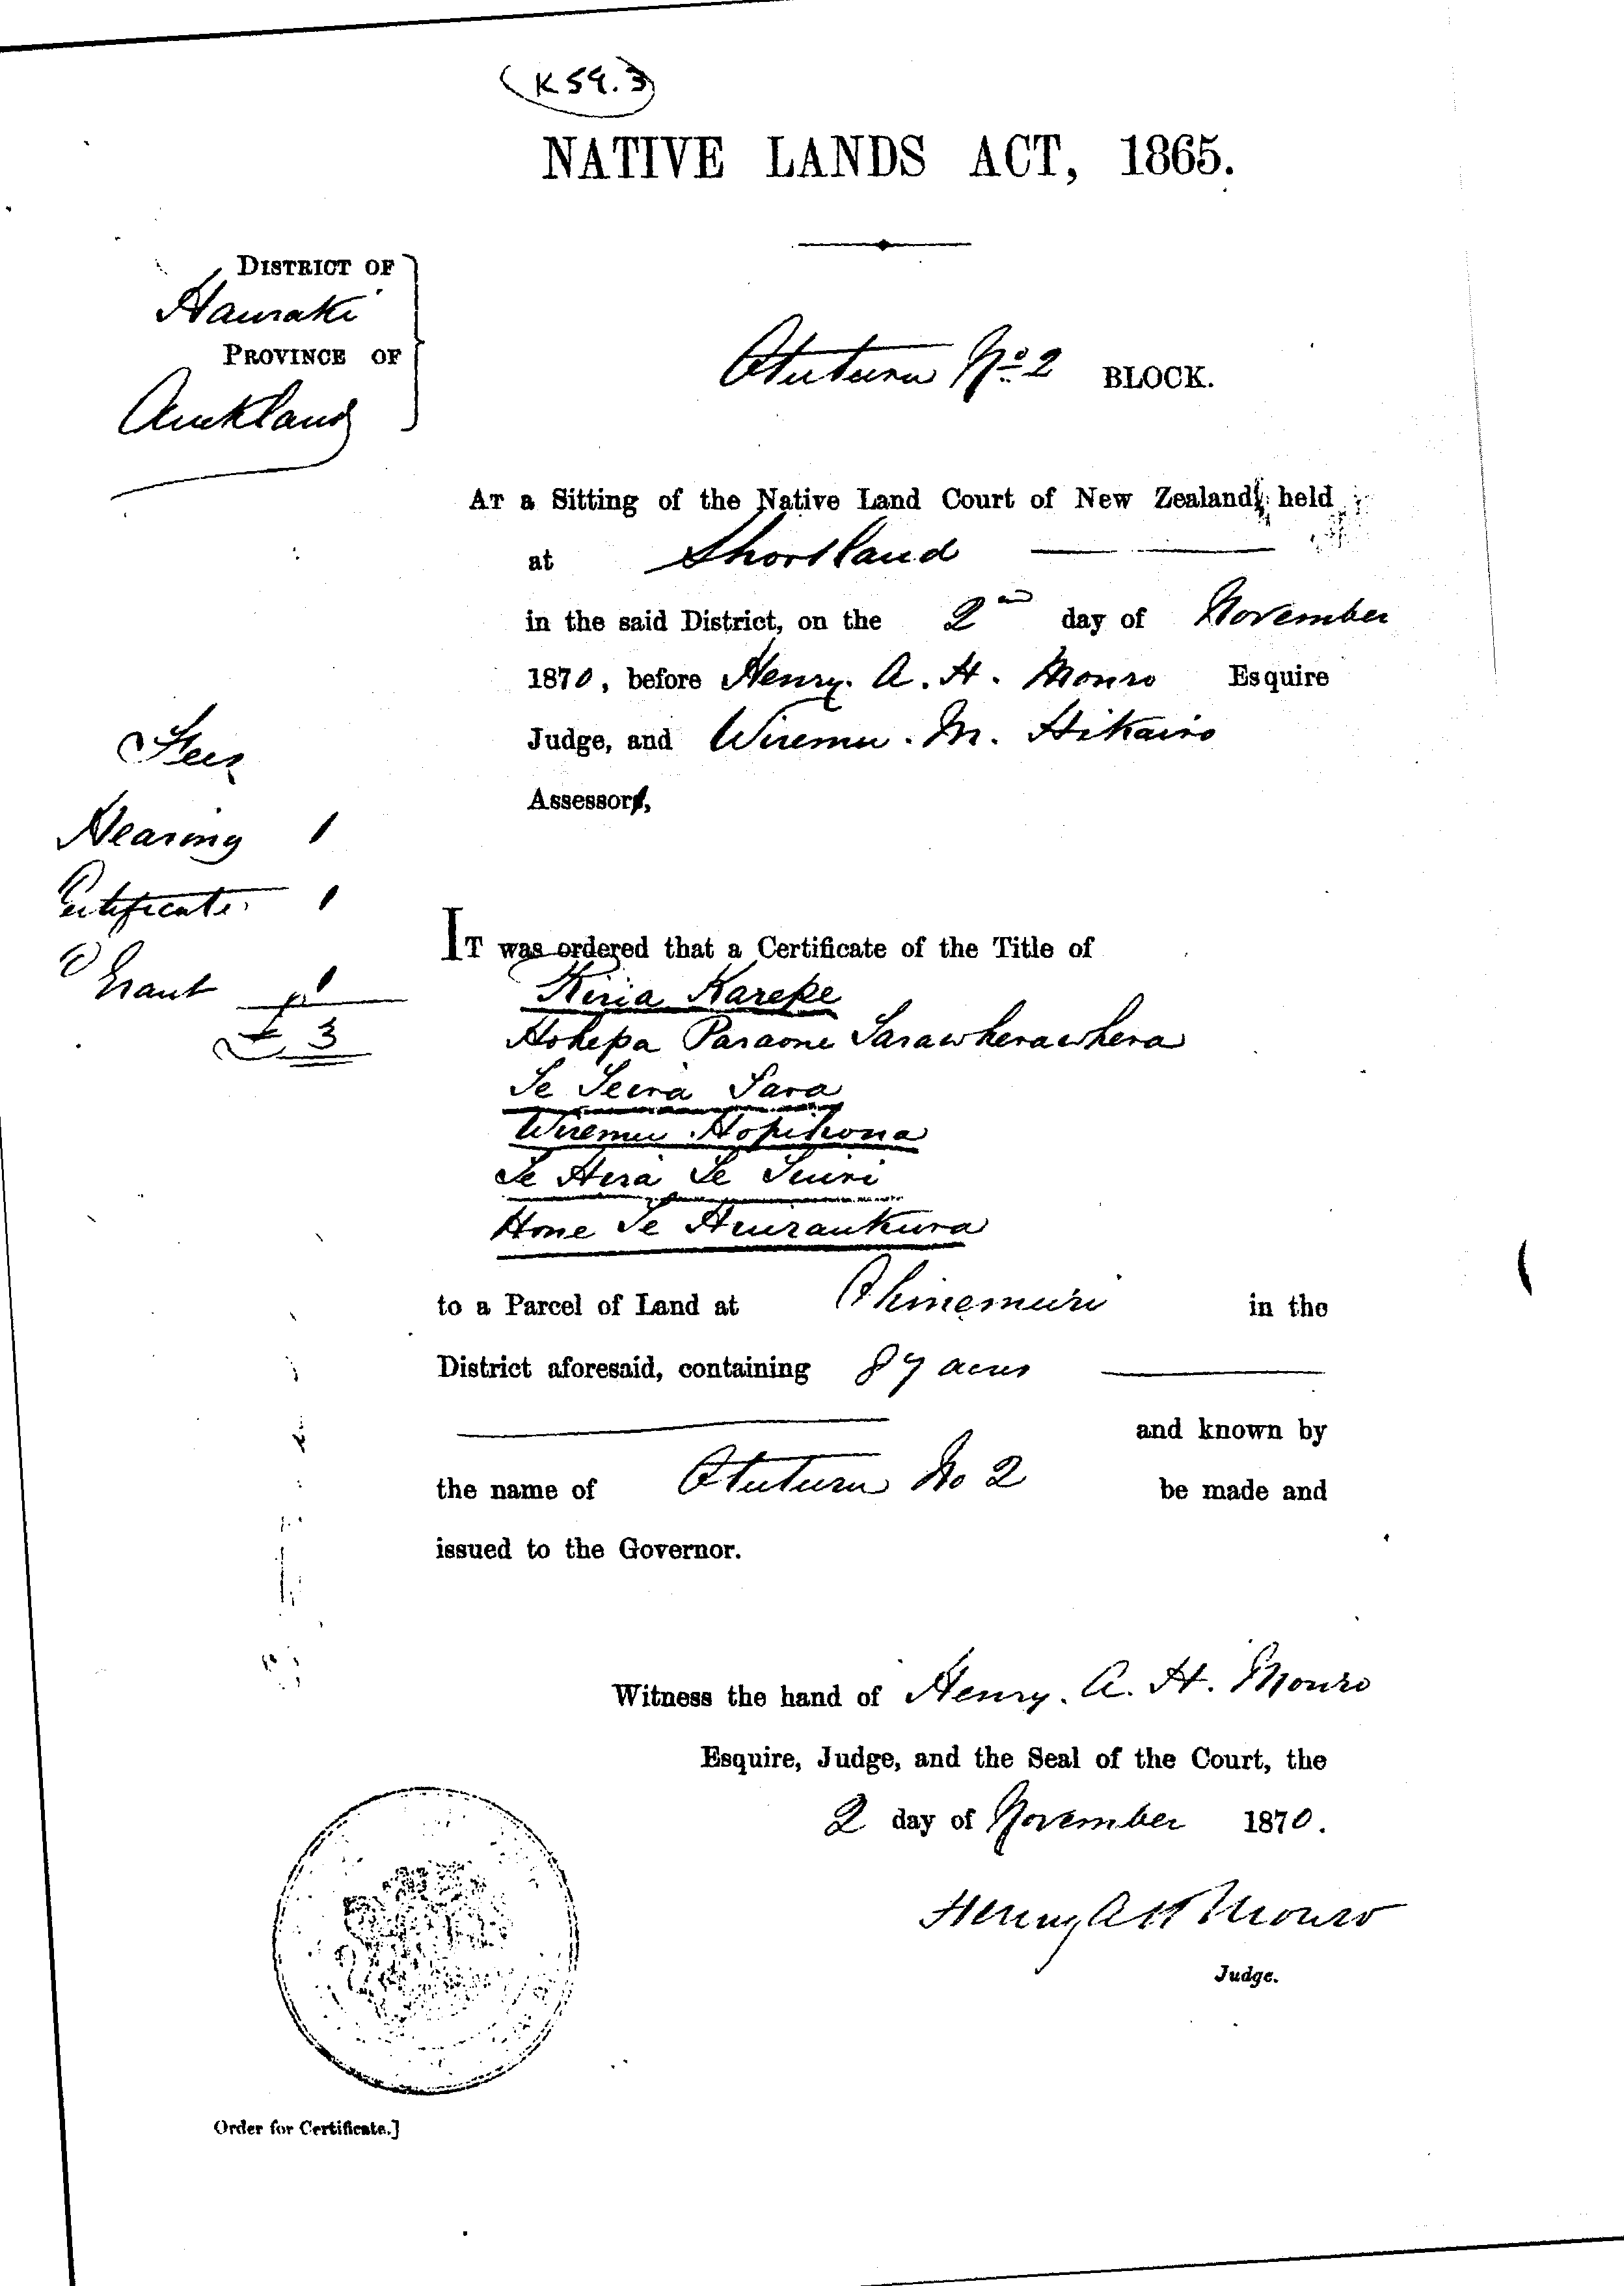 K 59.3
NATIVE LANDS ACT, 1865.
DISTRICT OF
Hauraki
PROVINCE OF
Auckland
Otuturu No. 2 BLOCK.
AT a Sitting of the Native Land Court of New Zealand, held
at Shortland
in the said District, on the 2nd day of November
1870, before Henry. A. H. Monro Esquire
Judge, and Wiremu. M. Hikairo
Assessor,
Fees
Hearing 1
Certificate 1
Grant 1
£ 3
IT was ordered that a Certificate of the Title of
Kiria Karepe
Hohepa Paraone Tarawherawhera
Te Teira Tara
Wiremu Hopihona
Te Hira Te Tuiri
Hone Te Huiraukura
to a Parcel of Land at Ohinemuri in the
District aforesaid, containing 87 acres
and known by
the name of Otuturu No 2 be made and
issued to the Governor.
Witness the hand of Henry. A. H. Monro
Esquire, Judge, and the Seal of the Court, the
2 day of November 1870.
Henry A H Monro
Judge.
Order for Certificate.]